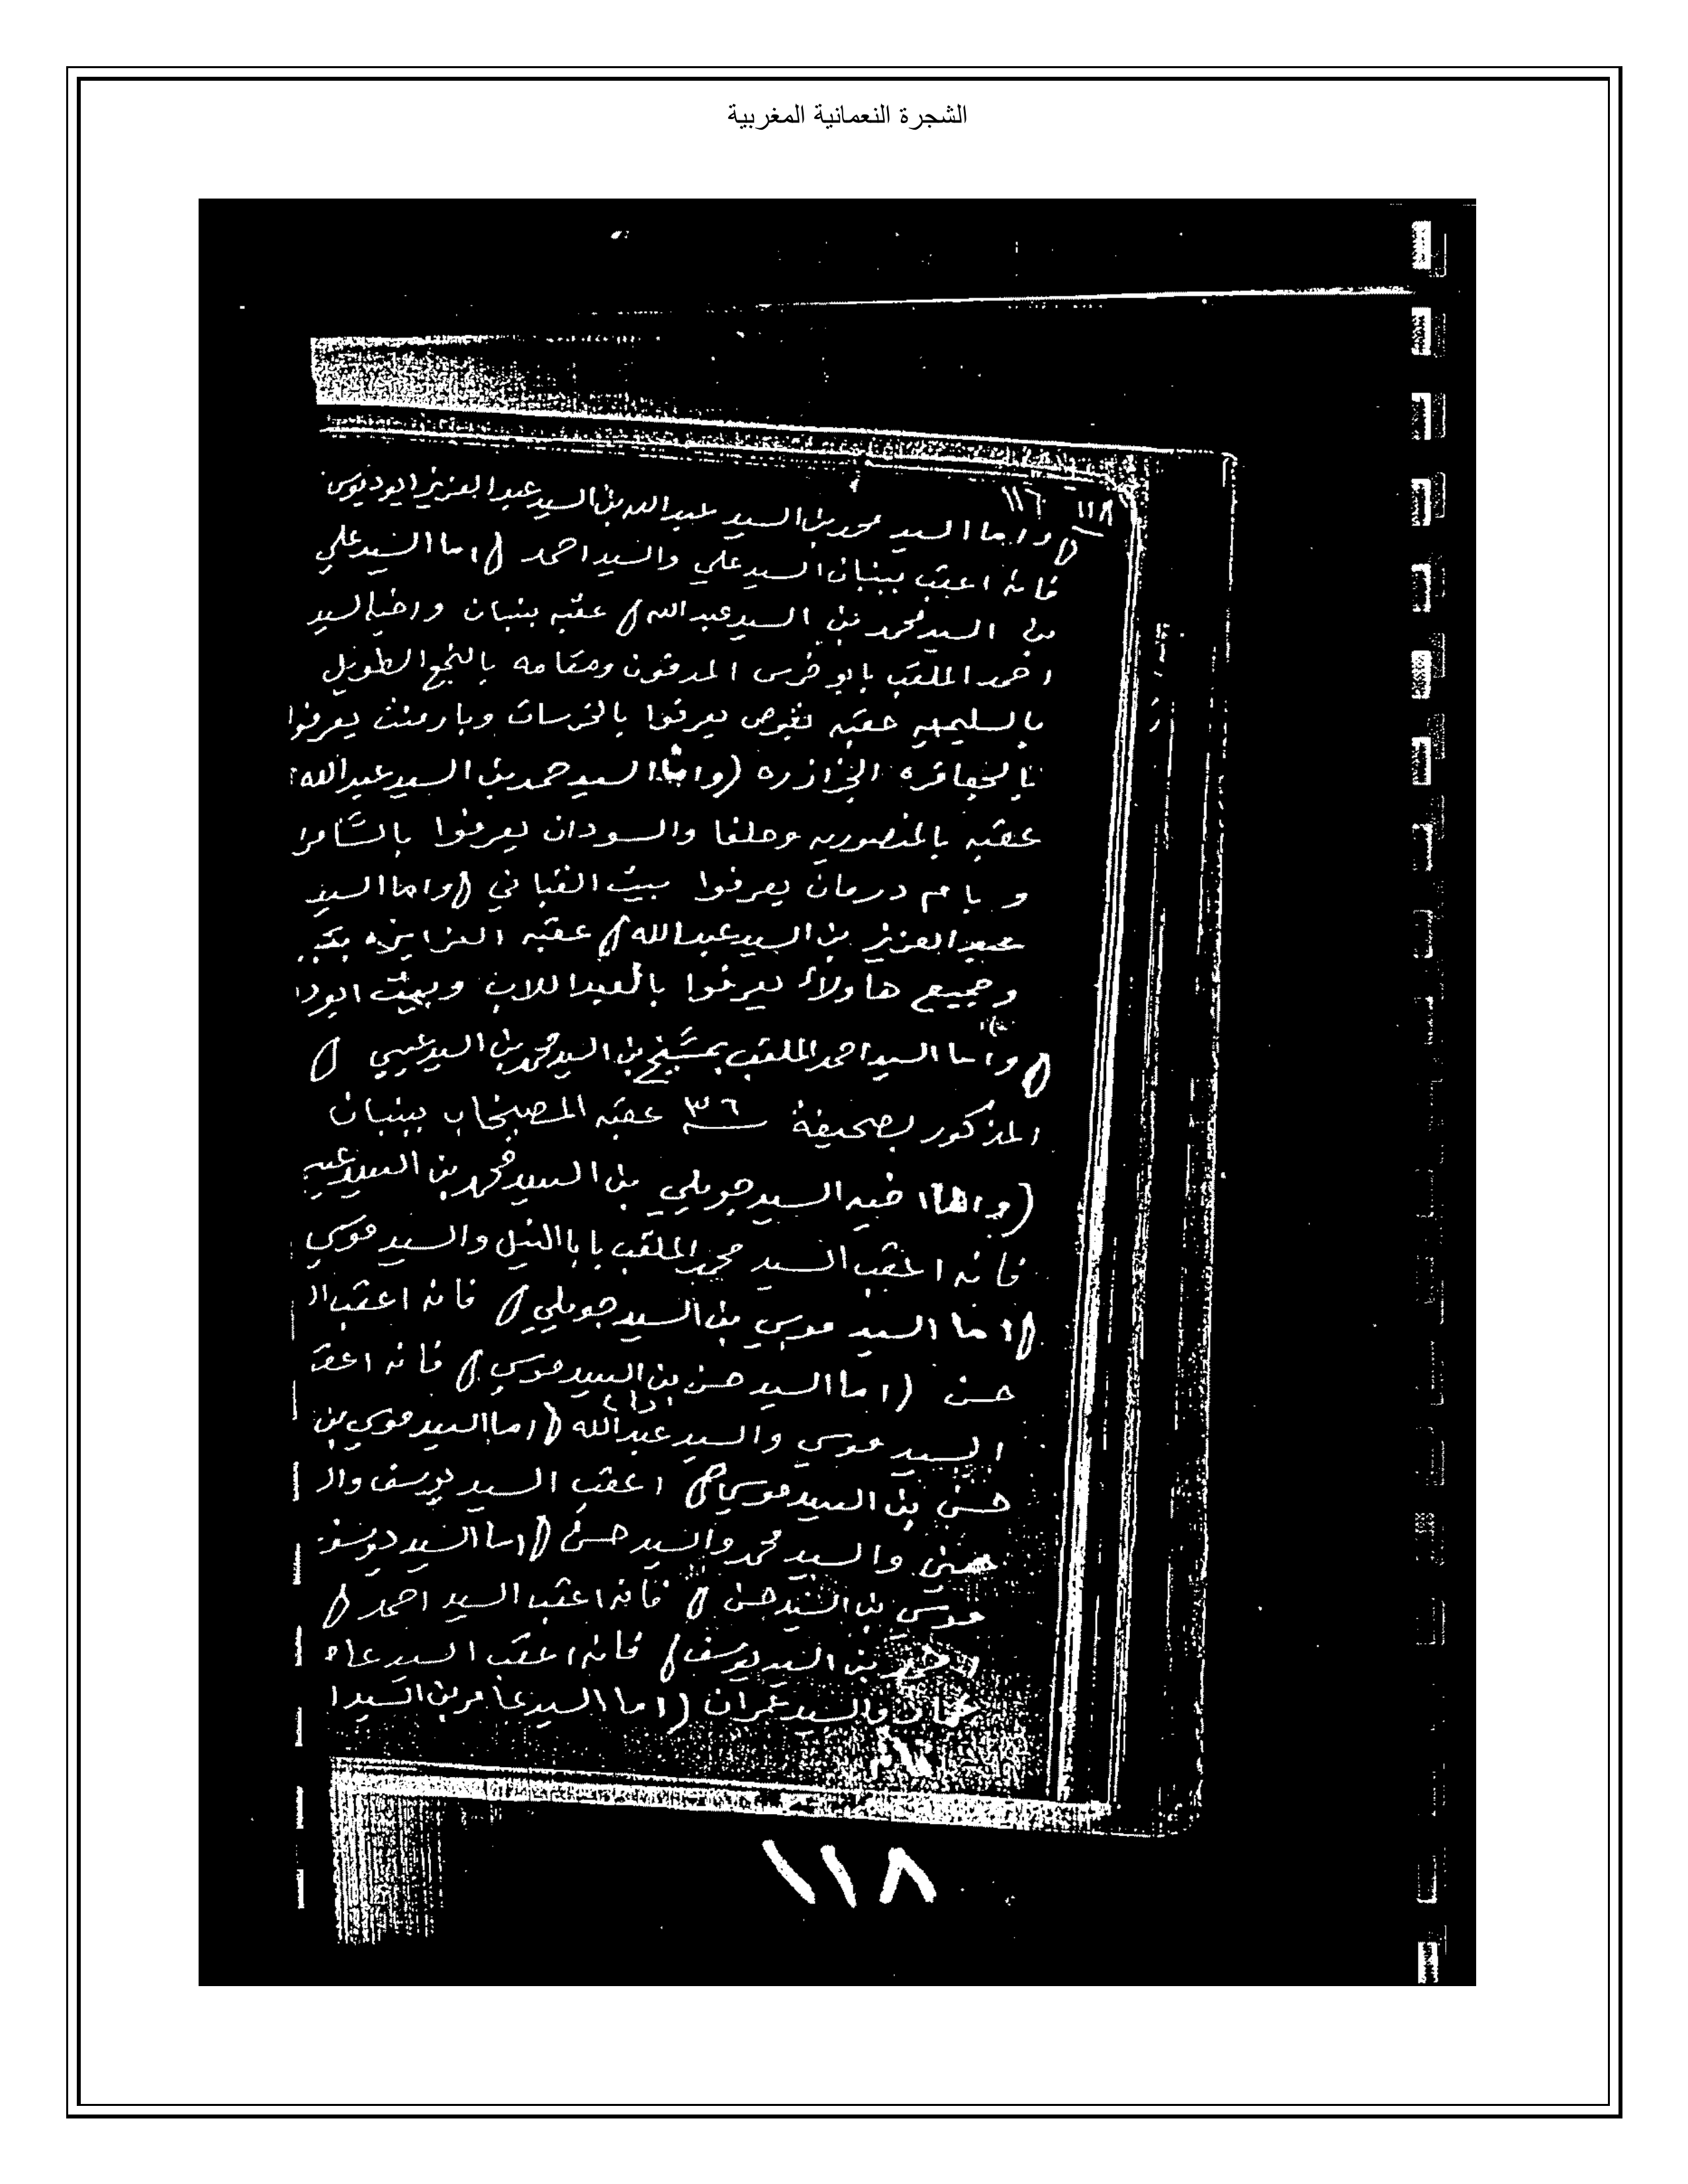 الشجرة النعمانية المغربية
١١٨ ١١٦
( واما السيد محمد بن السيد عبد الله بن السيد عبد العزيز ابو دبوس
فانه اعقب ببنبان السيد علي والسيد احمد ( اما السيد علي
بن السيد محمد بن السيد عبد الله ( عقبه بنبان واخيه السيد
احمد الملقب بابو خرس المدفون ومقامه بالنجع الطويل
عقبه يعرفوا بالخرسات وبارمنت يعرفوا
بالجعافره (واما السيد حمد بن السيد عبد الله
عقبه بالمنصوريه وحلفا والسودان يعرفوا
و بام درمان يعرفوا ببيت القباني ( واما السيد
عبد العزيز بن السيد عبد الله ( عقبه العزايزه
وجميع هاولاء يعرفوا بالعبداللاب وبيت ابود
( واما السيد احمد الملقب بن السيد محمد بن السيد عيسي (
المذكور بصحيفة ٣٦ عقبه ببنبان
(واما اخيه السيد جويلي بن السيد محمد بن السيد
فانه اعقب السيد محمد الملقب بابا النيل والسيد موسي
( اما السيد موسي بن السيد جويلي ( فانه اعقب ال
حسن (اما السيد حسن بن السيد موسي ( فانه اعقـ
السيد موسي والسيد عبد الله ( اما السيد موسي بن
حسن بن السيد موسي ( اعقب السيد يوسف وال
والسيد محمد والسيد ( اما السيد يوسف
موسي بن السيد حسن ( فانه اعقب السيد احمد (
احمد بن السيد يوسف ( فانه اعقب السيد
والسيد عمران (اما السيد عامر بن السيد ا
١١٨